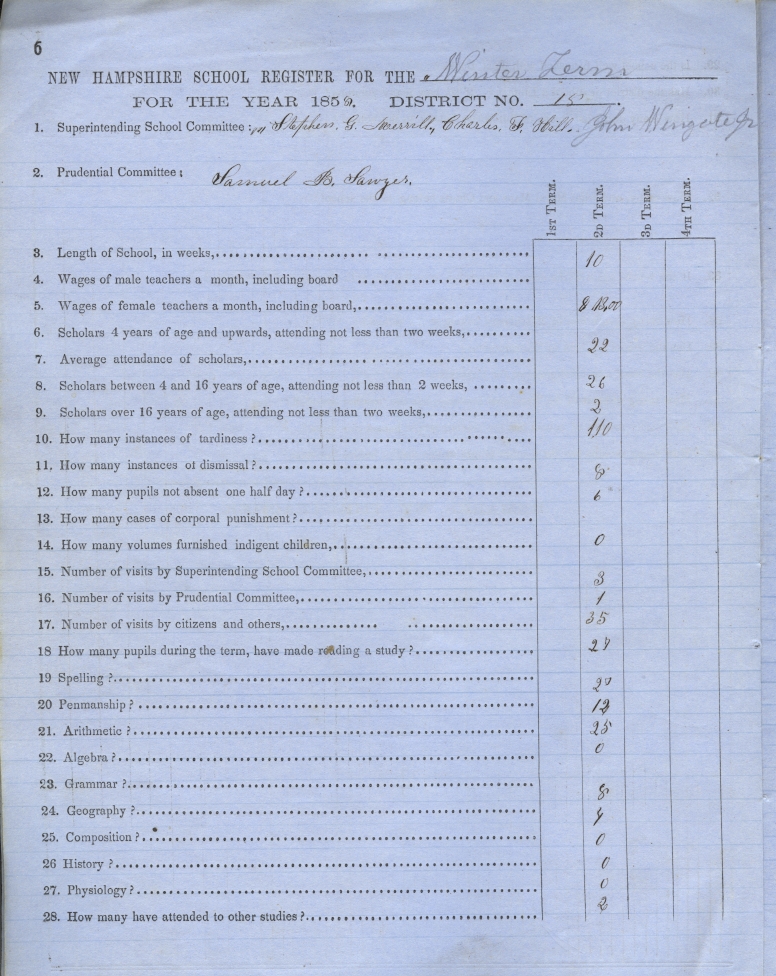 6
NEW HAMPSHIRE SCHOOL REGISTER FOR THE Winter Term
FOR THE YEAR 1859. DISTRICT NO. 15.
1. Superintending School Committee: Stephen. G. Merrill, Charles. F. Hill. John Wingate Jr
2. Prudential Committee: Samuel B. Sawyer.
1ST TERM. 2D TERM. 3D TERM. 4TH TERM.
3. Length of School, in weeks, 10
4. Wages of male teachers a month, including board
5. Wages of female teachers a month, including board, $ 13,00
6. Scholars 4 years of age and upwards, attending not less than two weeks,
7. Average attendance of scholars, 22
8. Scholars between 4 and 16 years of age, attending not less than 2 weeks, 26
9. Scholars over 16 years of age, attending not less than two weeks, 2
10. How many instances of tardiness? 110
11. How many instances of dismissal? 8
12. How many pupils not absent one half day? 6
13. How many cases of corporal punishment?
14. How many volumes furnished indigent children, 0
15. Number of visits by Superintending School Committee, 3
16. Number of visits by Prudential Committee, 1
17. Number of visits by citizens and others, 35
18 How many pupils during the term, have made reading a study?
19 Spelling?
20 Penmanship? 12
21. Arithmetic? 25
22. Algebra? 0
23. Grammar? 8
24. Geography?
25. Composition? 0
26 History? 0
27. Physiology? 0
28. How many have attended to other studies? 2